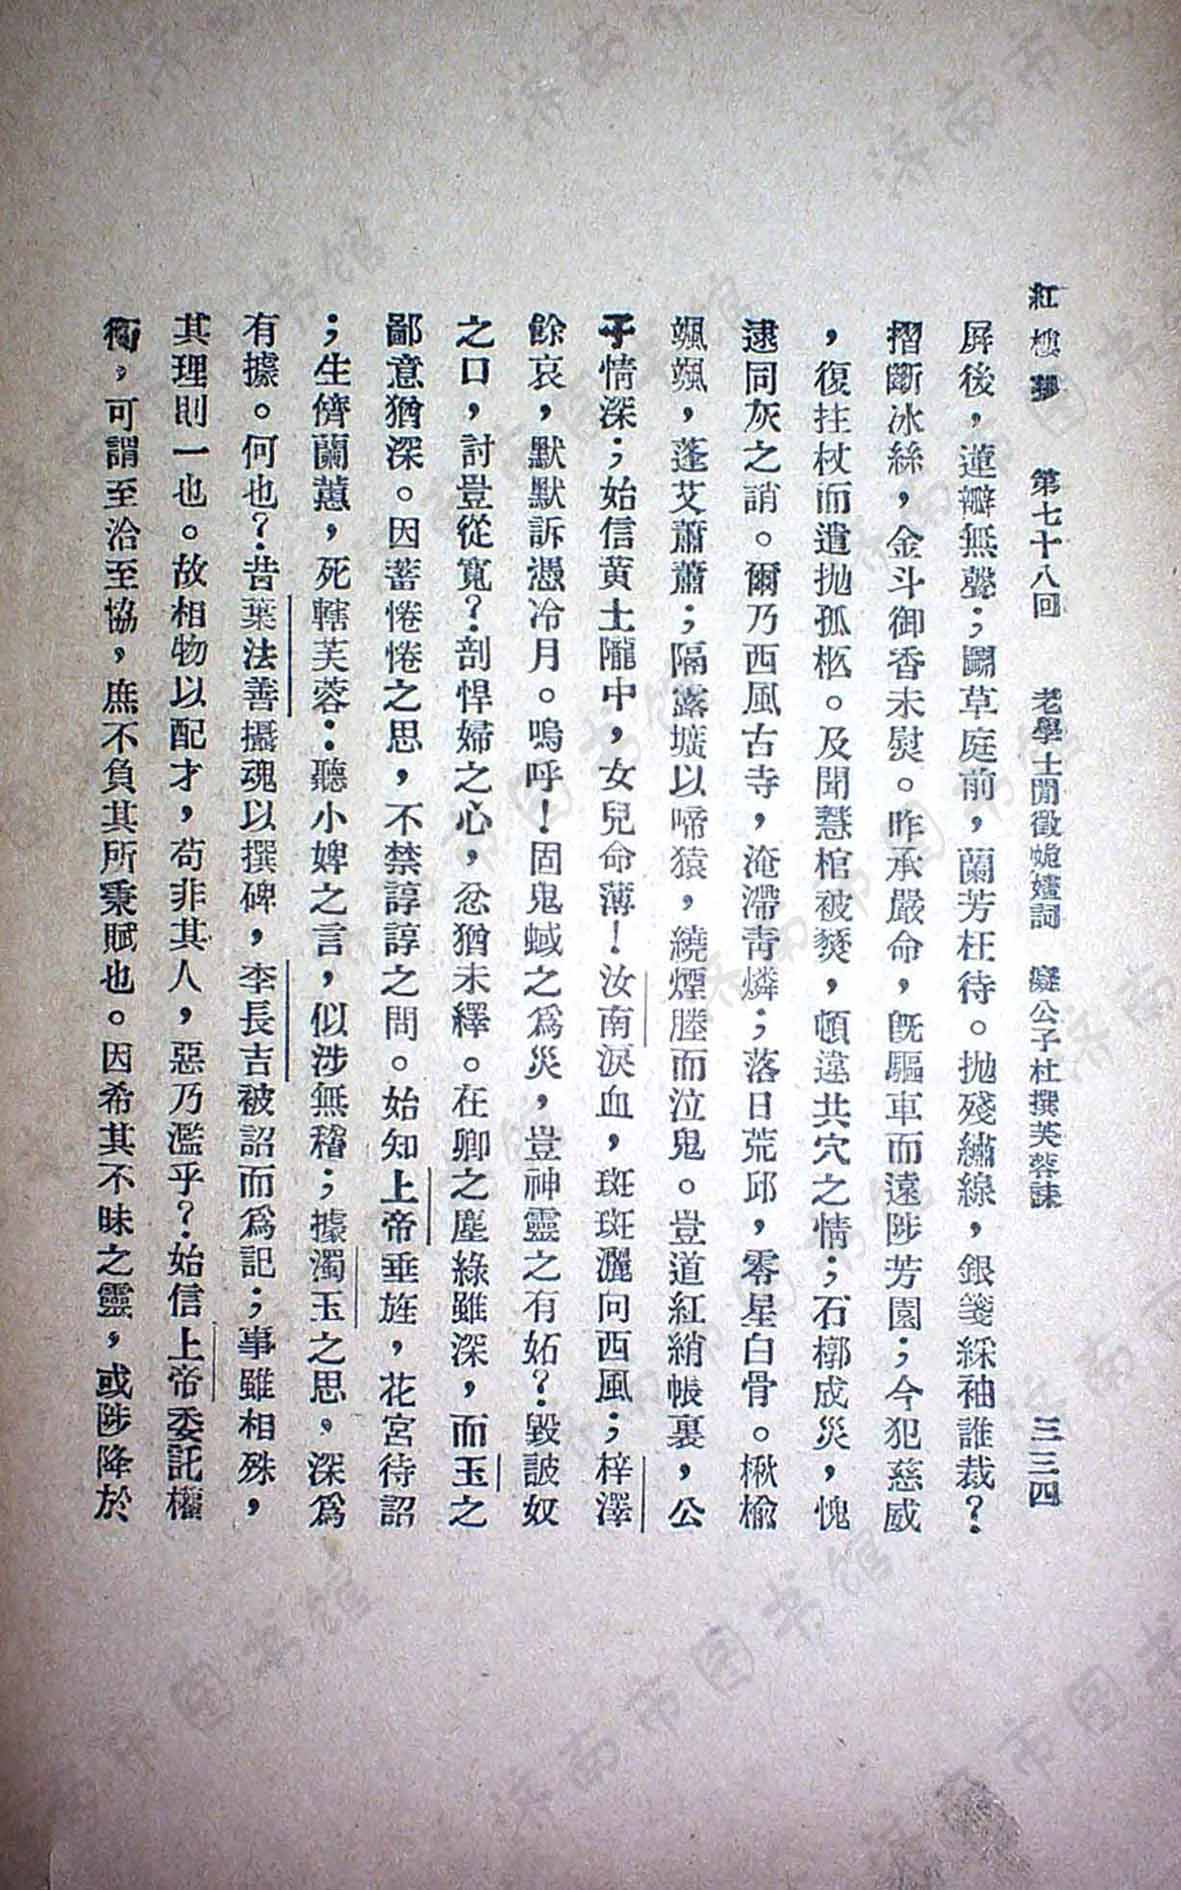 紅樓夢　第七十八回　老學士閒徵姽嫿詞　癡公子杜撰芙蓉誄　三三四
屏後，蓮瓣無聲；鬭草庭前，蘭芳枉待。拋殘繡線，銀箋綵袖誰裁？
摺斷冰絲，金斗御香未熨。昨承嚴命，旣驅車而遠陟芳園；今犯慈威
，復拄杖而遣拋孤柩。及聞慧棺被燹，頓違共穴之情；石槨成災，愧
逮同灰之誚。爾乃西風古寺，淹滯靑燐；落日荒邱，零星白骨。楸榆
颯颯，蓬艾蕭蕭；隔露壙以啼猿，繞煙塍而泣鬼。豈道紅綃帳裏，公
子情深；始信黃土隴中，女兒命薄！汝南淚血，斑斑灑向西風；梓澤
餘哀，默默訴憑冷月。嗚呼！固鬼蜮之爲災，豈神靈之有妬？毀詖奴
之口，討豈從寬？剖悍婦之心，忿猶未釋。在卿之塵綠雖深，而玉之
鄙意猶深。因蓄惓惓之思，不禁諄諄之問。始知上帝垂旌，花宮待詔
；生儕蘭蕙，死轄芙蓉：聽小婢之言，似涉無稽；據濁玉之思，深爲
有據。何也？昔葉法善攝魂以撰碑，李長吉被詔而爲記；事雖相殊，
其理則一也。故相物以配才，苟非其人，惡乃濫乎？始信上帝委託權
衡，可謂至洽至協，庶不負其所秉賦也。因希其不昧之靈，或陟降於
济南市图书馆